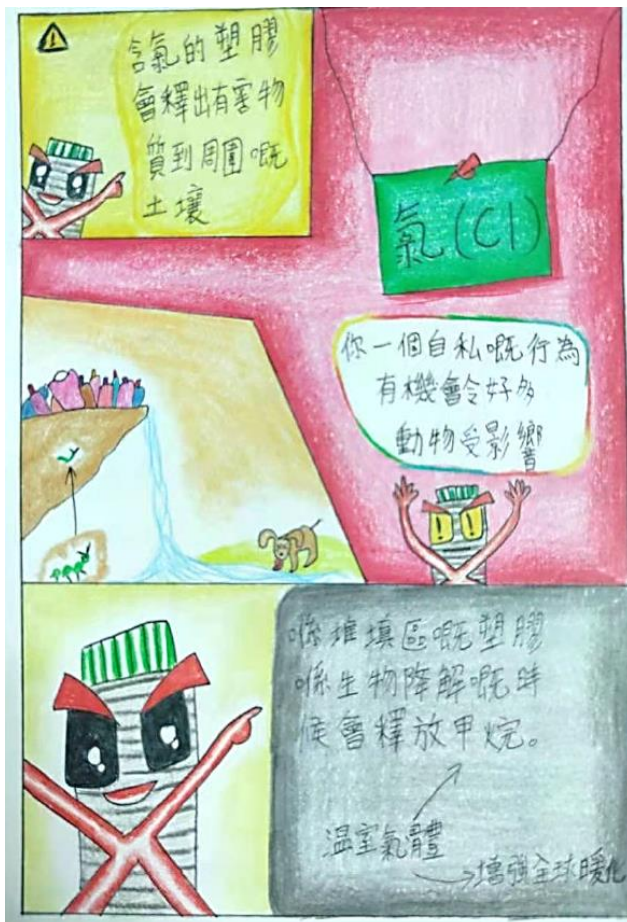 含氯的塑膠
會釋出有害物
質到周圍嘅
土壤
氯(Cl)
你一個自私嘅行為
有機會令好多
動物受影響
喺堆填區嘅塑膠
喺生物降解嘅時
候會釋放甲烷。
溫室氣體
增強全球暖化